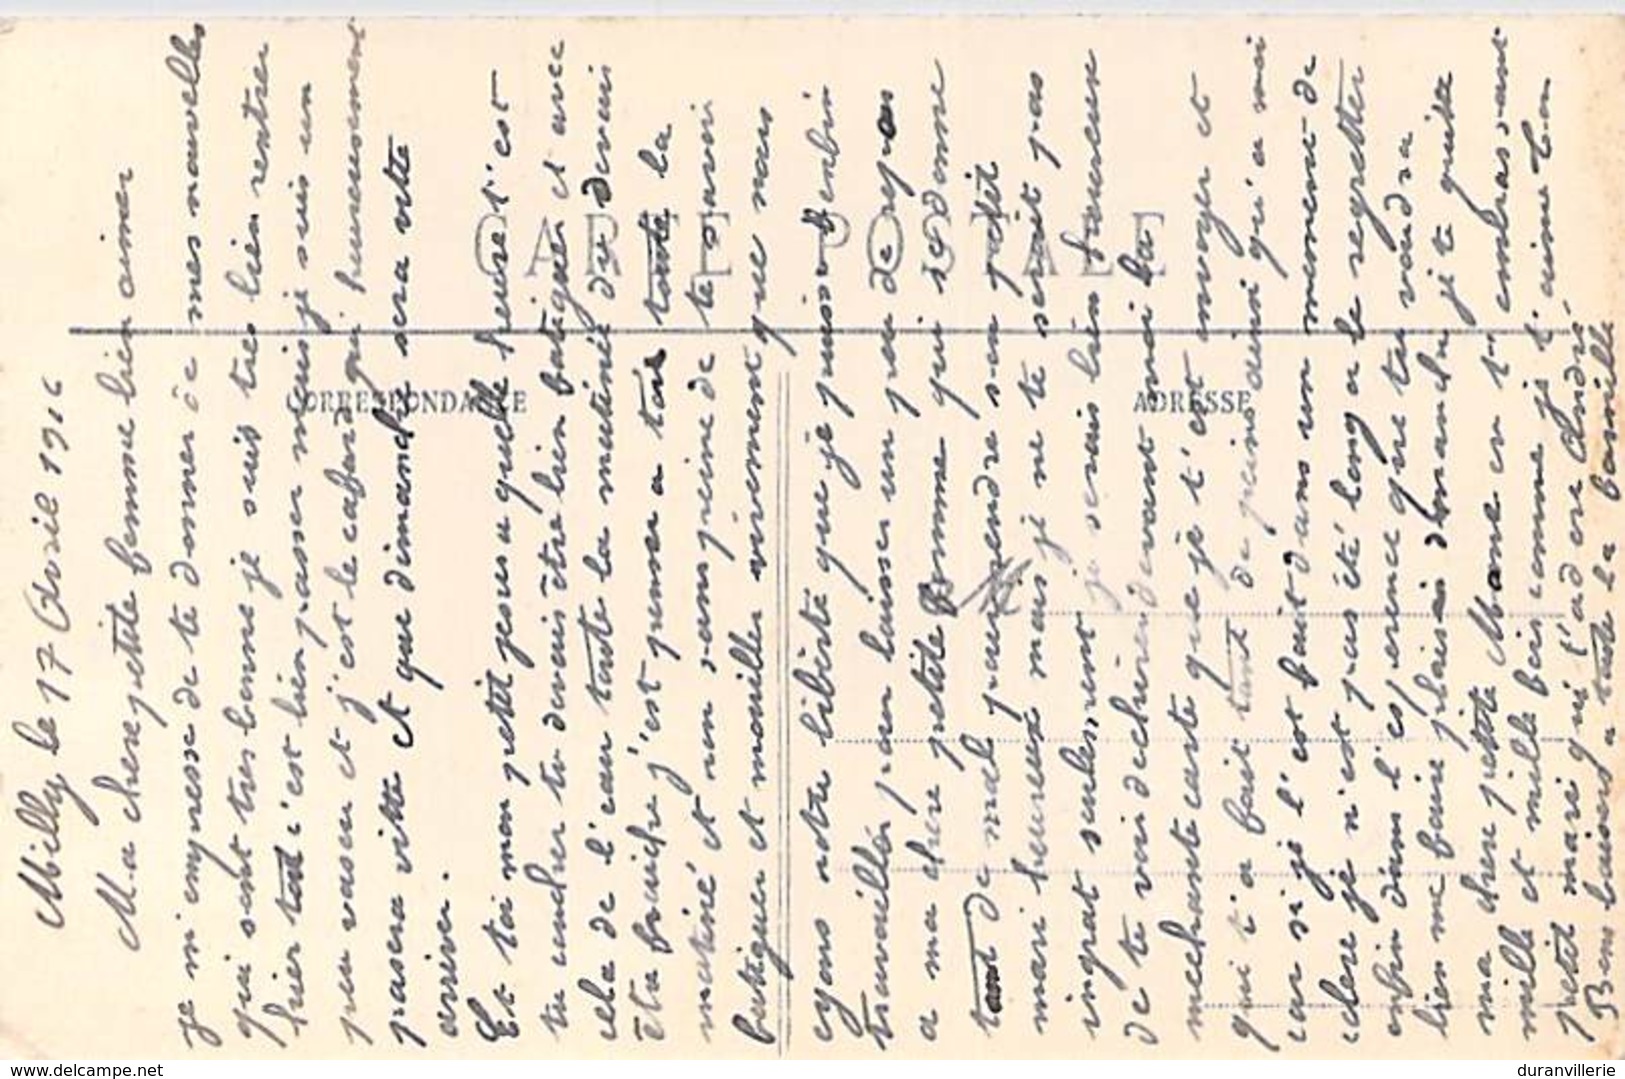 Milly le 17 Avril 1916
Ma chere petite femme bien aimer
je m'empresse de te donner de mes nouvelles
qui sont tres bonne je suis tres bien rentrer
hier tout c'est bien passer mais je suis un
peu vaseu et j'est le cafard qui heureusement
passera vitte et que dimanche sera vite
arriver.
Et toi mon petit jesus quelle heure t'est
tu coucher tu devais être bien fatiguer et avec
cela de l'eau toute la matiné du devais
êtu fraiche j'est penser a toie toute la
matiné et non sans peine de te savoir
fatiguer et mouiller vivement que nous
ayons notre liberté que je puisse enfin
travaillér pour laisser un peu de repos
a ma chere petite femme qui se donne
tant de mal pour rendre son petit
mari heureux mais je ne te serait pas
ingrat seulement je serais bien heureux
de te voir dechirer devant moi la
mechante carte que je t'est envoyer et
qui t'a fait tant de peine ainsi qu'a moi
car si je l'est fait dans un moment de
colere je n'est pas été long a le regretter
enfin dans l'esperence que tu voudra
bien me faire plaisir dimanche je te quitte
ma chere petite Mane en t'embrassant
mille et mille fois comme je t'aime ton
petit mari qui t'adore André
Bons baisers a toute la famille
CARTE POSTALE
CORRESPONDANCE
ADRESSE
www.delcampe.net
duranvillerie